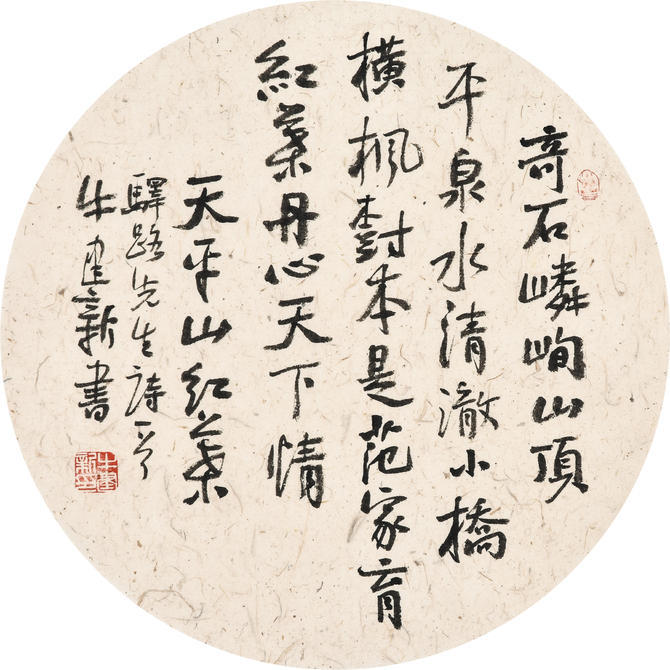 竒石嶙峋山頂
平泉水清澈小橋
橫楓樹本是范家育
紅葉丹心天下情
天平山紅葉
驛路先生詩一首
牛建新書